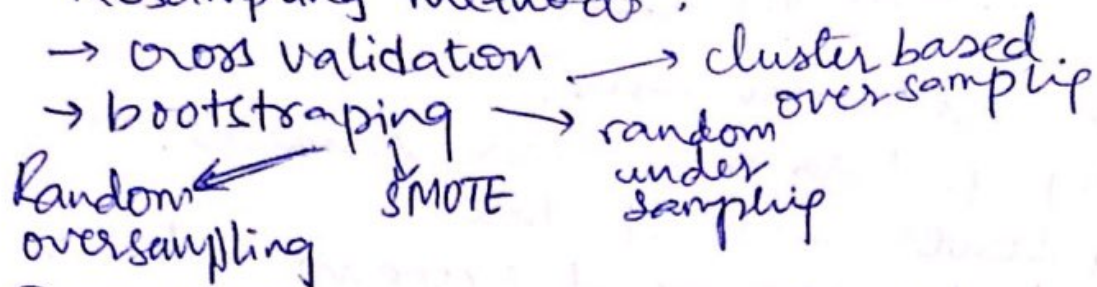 Resampling methods :
→ cross validation → cluster based
oversamplig
→ bootstraping → random
under
samplig
SMOTE
Random
oversampling